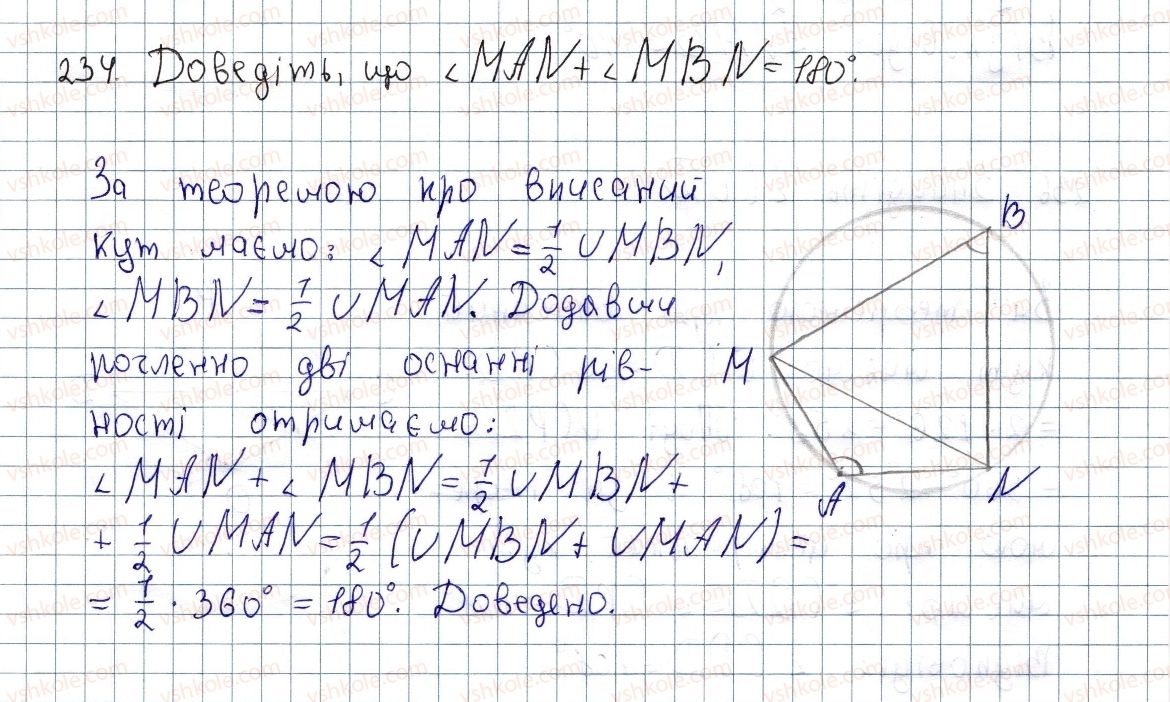 234. Доведіть, що ∠MAN + ∠MBN = 180°.
За теоремою про вписаний
кут маємо: ∠MAN = 1/2 ∪MBN,
∠MBN = 1/2 ∪MAN. Додавши
почленно дві останні рів-
ності отримаємо:
∠MAN + ∠MBN = 1/2 ∪MBN +
+ 1/2 ∪MAN = 1/2 (∪MBN + ∪MAN) =
= 1/2 · 360° = 180°. Доведено.
B
M
A
N
vshkole.com